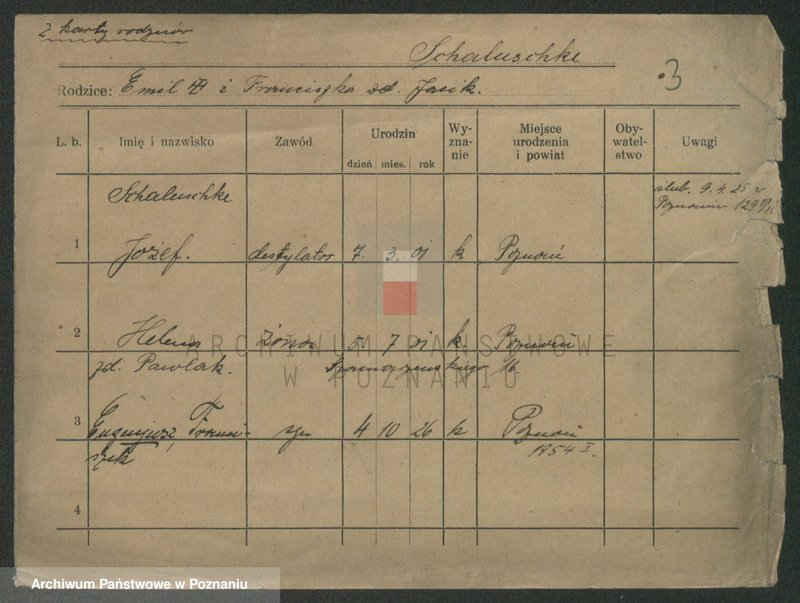 z karty rodziców
Schaluschke
3
Rodzice: Emil i Franciszka zd. Jasik.
L. b. Imię i nazwisko Zawód Urodzin dzień mies. rok Wy-zna-nie Miejsce urodzenia i powiat Oby-watel-stwo Uwagi
Schaluschke
ślub. 9.4.25 w
Poznaniu
1 Józef. destylator 7. 3. 01 k Poznań
2 Helena żona 5. 7 01 k Poznań
zd. Pawlak. 16.
ARCHIWUM PAŃSTWOWE
W POZNANIU
3 Eugenjusz Franci- syn 4 10 26 k Poznań
szek 1954 I.
4
Archiwum Państwowe w Poznaniu